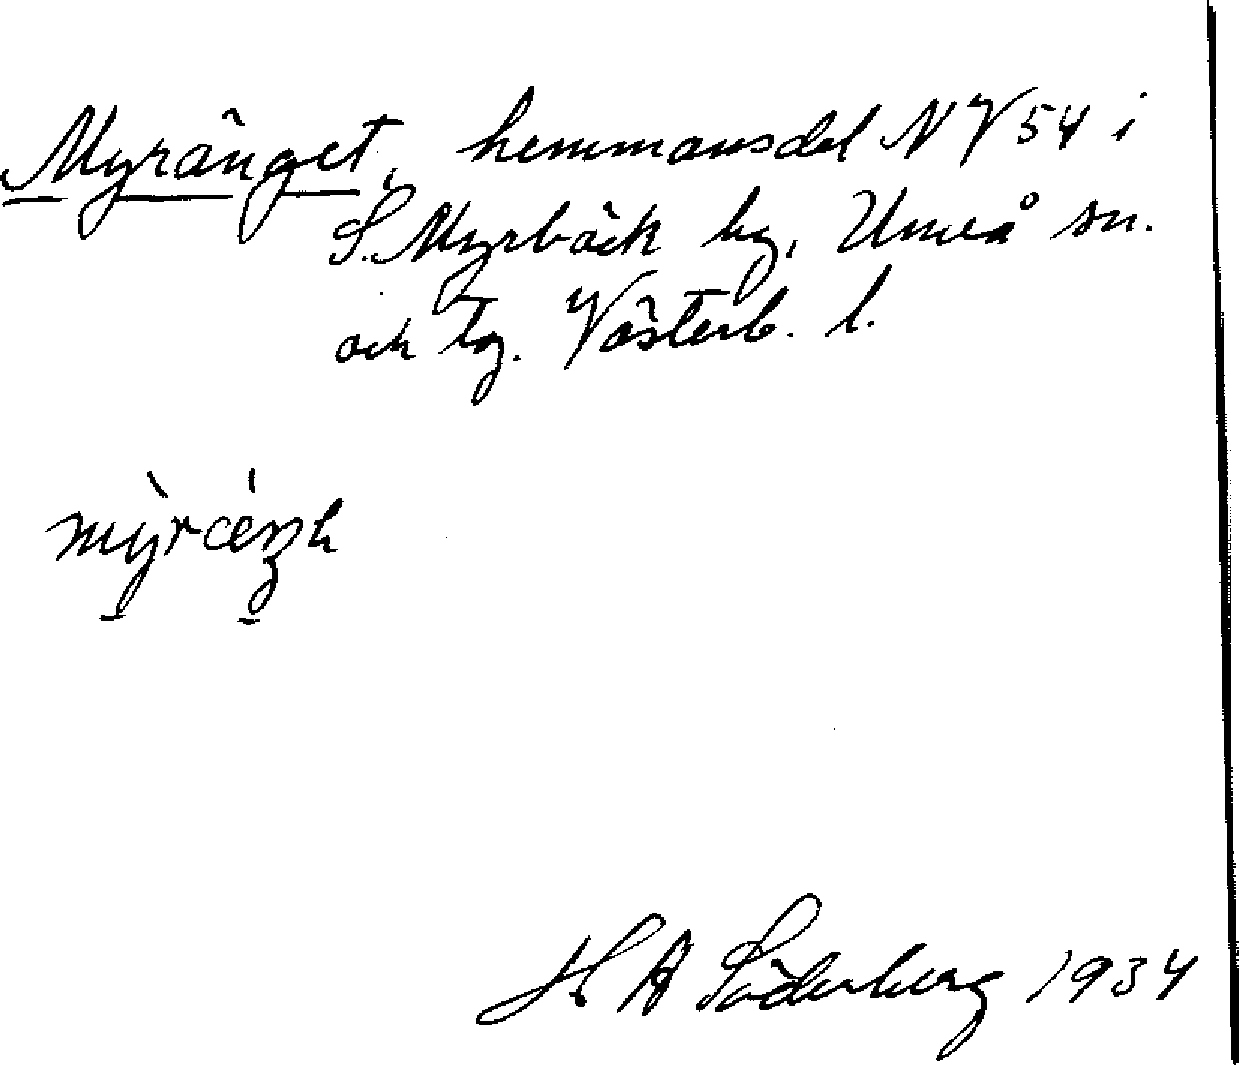 Myränget, hemmansdel NV 54 i
S. Myrbäck by, Umeå sn.
och tg. Västerb. l.
H A Söderberg 1934